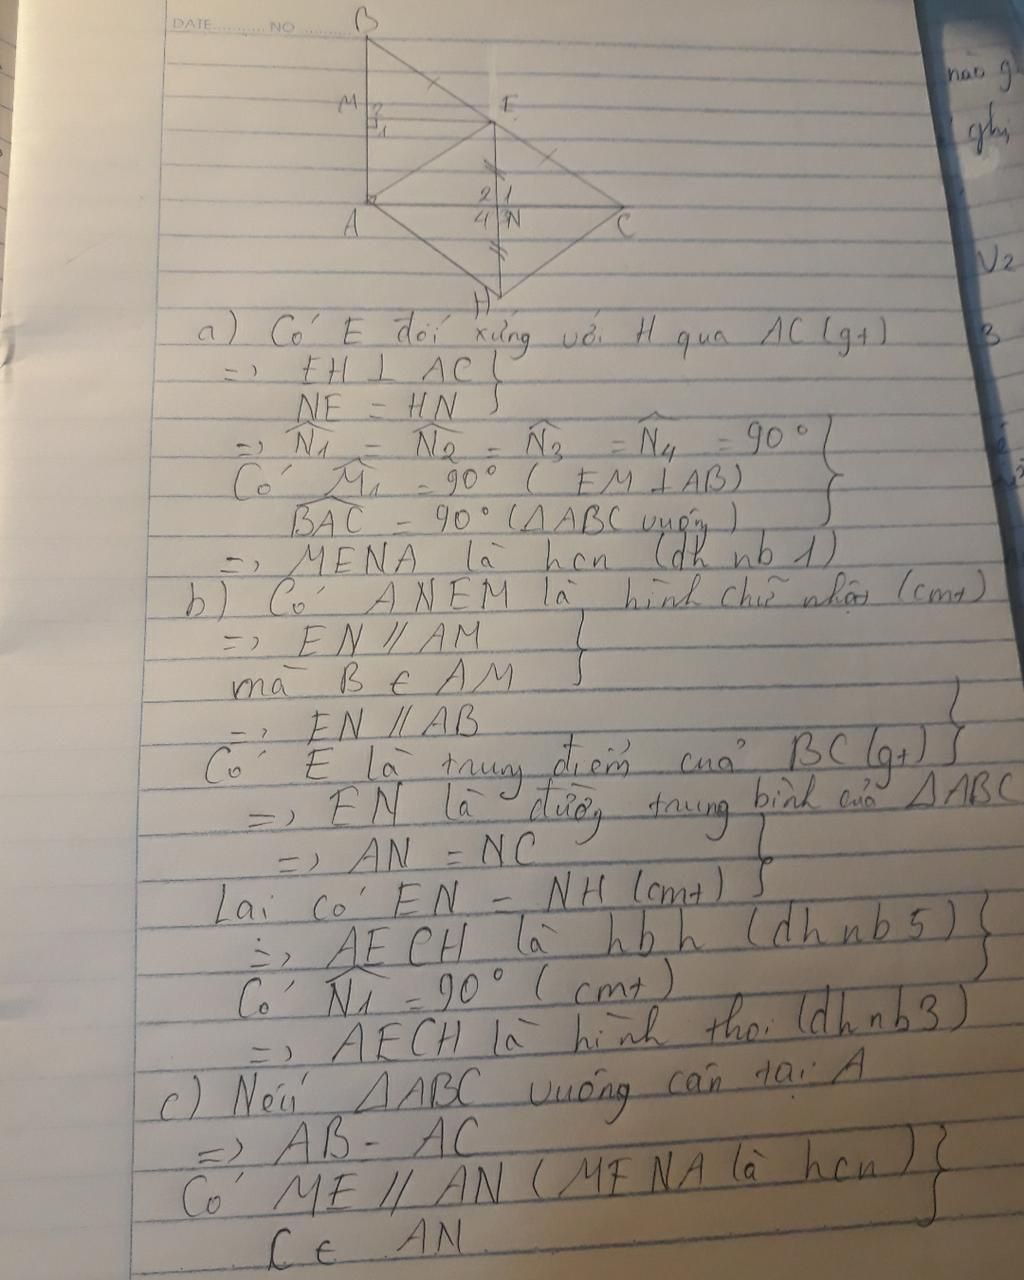 DATE............ NO ............
B
M 2
E
1
2 1
A 4 3 N C
H
nào g
ghi
V2
3
a) Có E đối xứng với H qua AC (gt)
=> EH ⊥ AC }
NE = HN
=> N̂1 = N̂2 = N̂3 = N̂4 = 90° }
Có M̂1 = 90° ( EM ⊥ AB)
BAC = 90° (ΔABC vuông)
=> MENA là hcn (dh nb 1)
b) Có ANEM là hình chữ nhật (cmt)
=> EN // AM }
mà B ∈ AM
=> EN // AB }
Có E là trung điểm của BC (gt)
=> EN là đường trung bình của ΔABC
=> AN = NC }
Lại có EN = NH (cmt)
=> AECH là hbh (dh nb 5) }
Có N̂1 = 90° ( cmt)
=> AECH là hình thoi (dh nb 3)
c) Nếu ΔABC vuông cân tại A
=> AB = AC
Có ME // AN ( MENA là hcn ) }
C ∈ AN